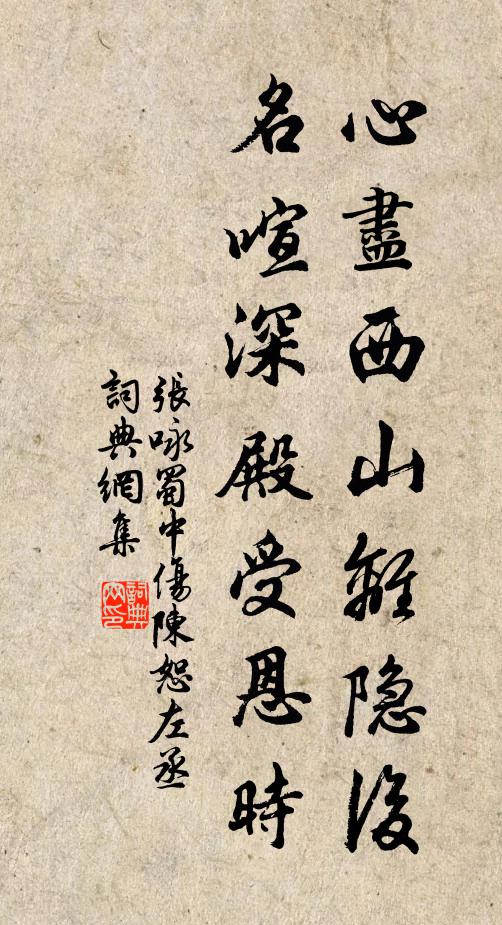 心盡西山離隐後
名喧深殿受恩時
張咏蜀中傷陳恕左丞
詞典網集
詞典
网印